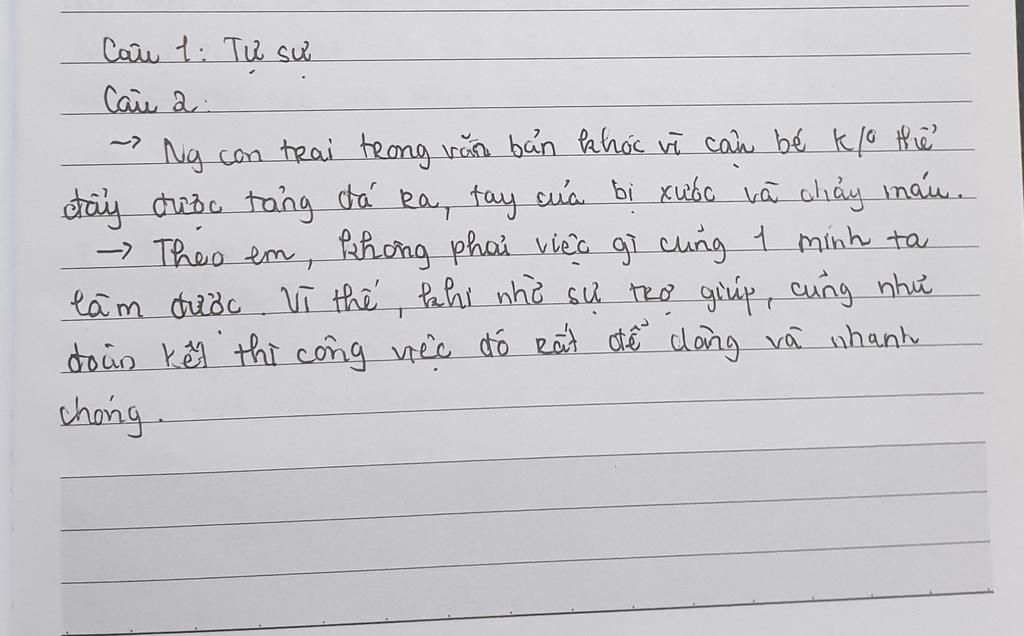 Câu 1: Tự sự
Câu 2:
→ Ng con trai trong văn bản khóc vì cậu bé k/o thể
đẩy được tảng đá ra, tay của bị xước và chảy máu.
→ Theo em, không phải việc gì cũng 1 mình ta
làm được. Vì thế, khi nhờ sự trợ giúp, cũng như
đoàn kết thì công việc đó rất dễ dàng và nhanh
chóng.